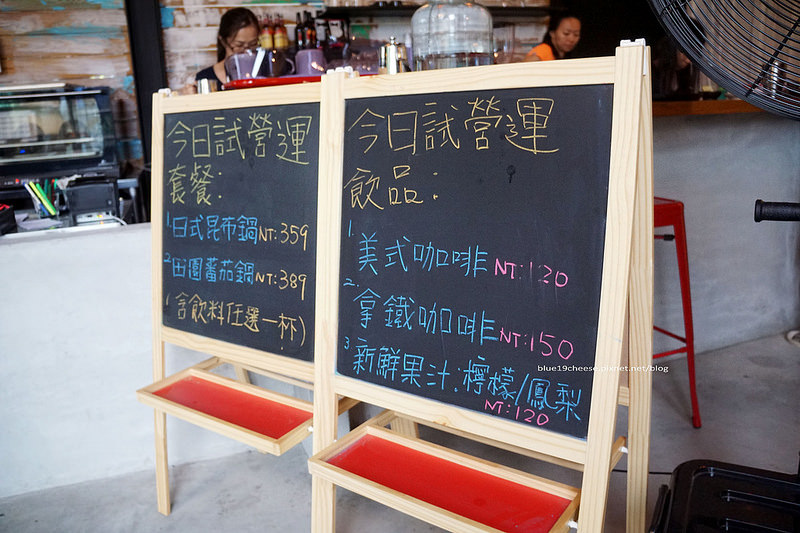 今日試營運
套餐:
1.日式昆布鍋NT:359
2.田園蕃茄鍋NT:389
(含飲料任選一杯)
今日試營運
飲品:
1.美式咖啡NT:120
2.拿鐵咖啡NT:150
3.新鮮果汁:檸檬/鳳梨
NT:120
blue19cheese.pixnet.net/blog